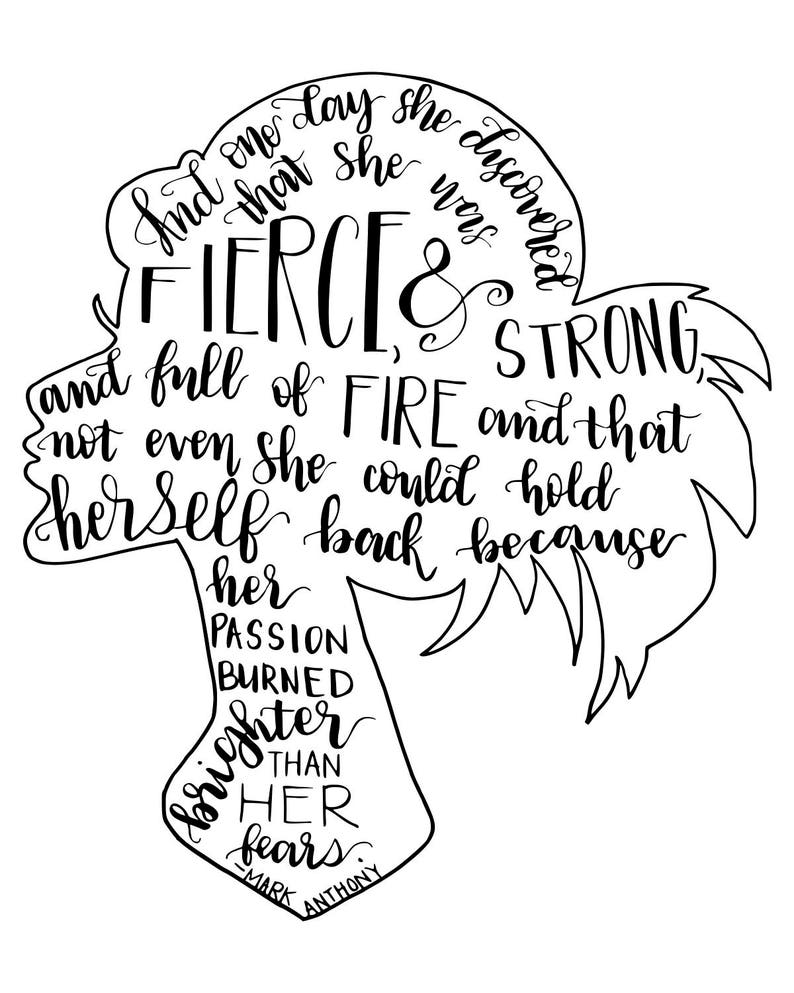 And one day she discovered
that she was
FIERCE, & STRONG,
and full of FIRE and that
not even she could hold
herself back because
her
PASSION
BURNED
brighter
THAN
HER
fears.
-MARK ANTHONY